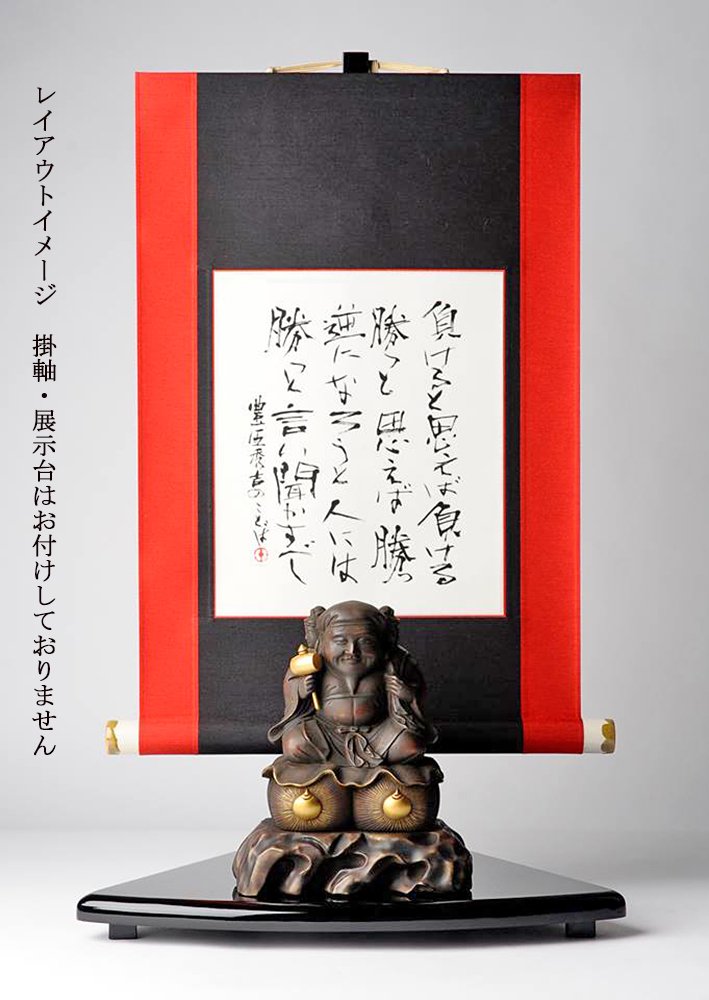 負けると思えば負ける
勝つと思えば勝つ
逆になろうと人には
勝つと言い聞かすべし
豊臣秀吉のことば
レイアウトイメージ　掛軸・展示台はお付けしておりません